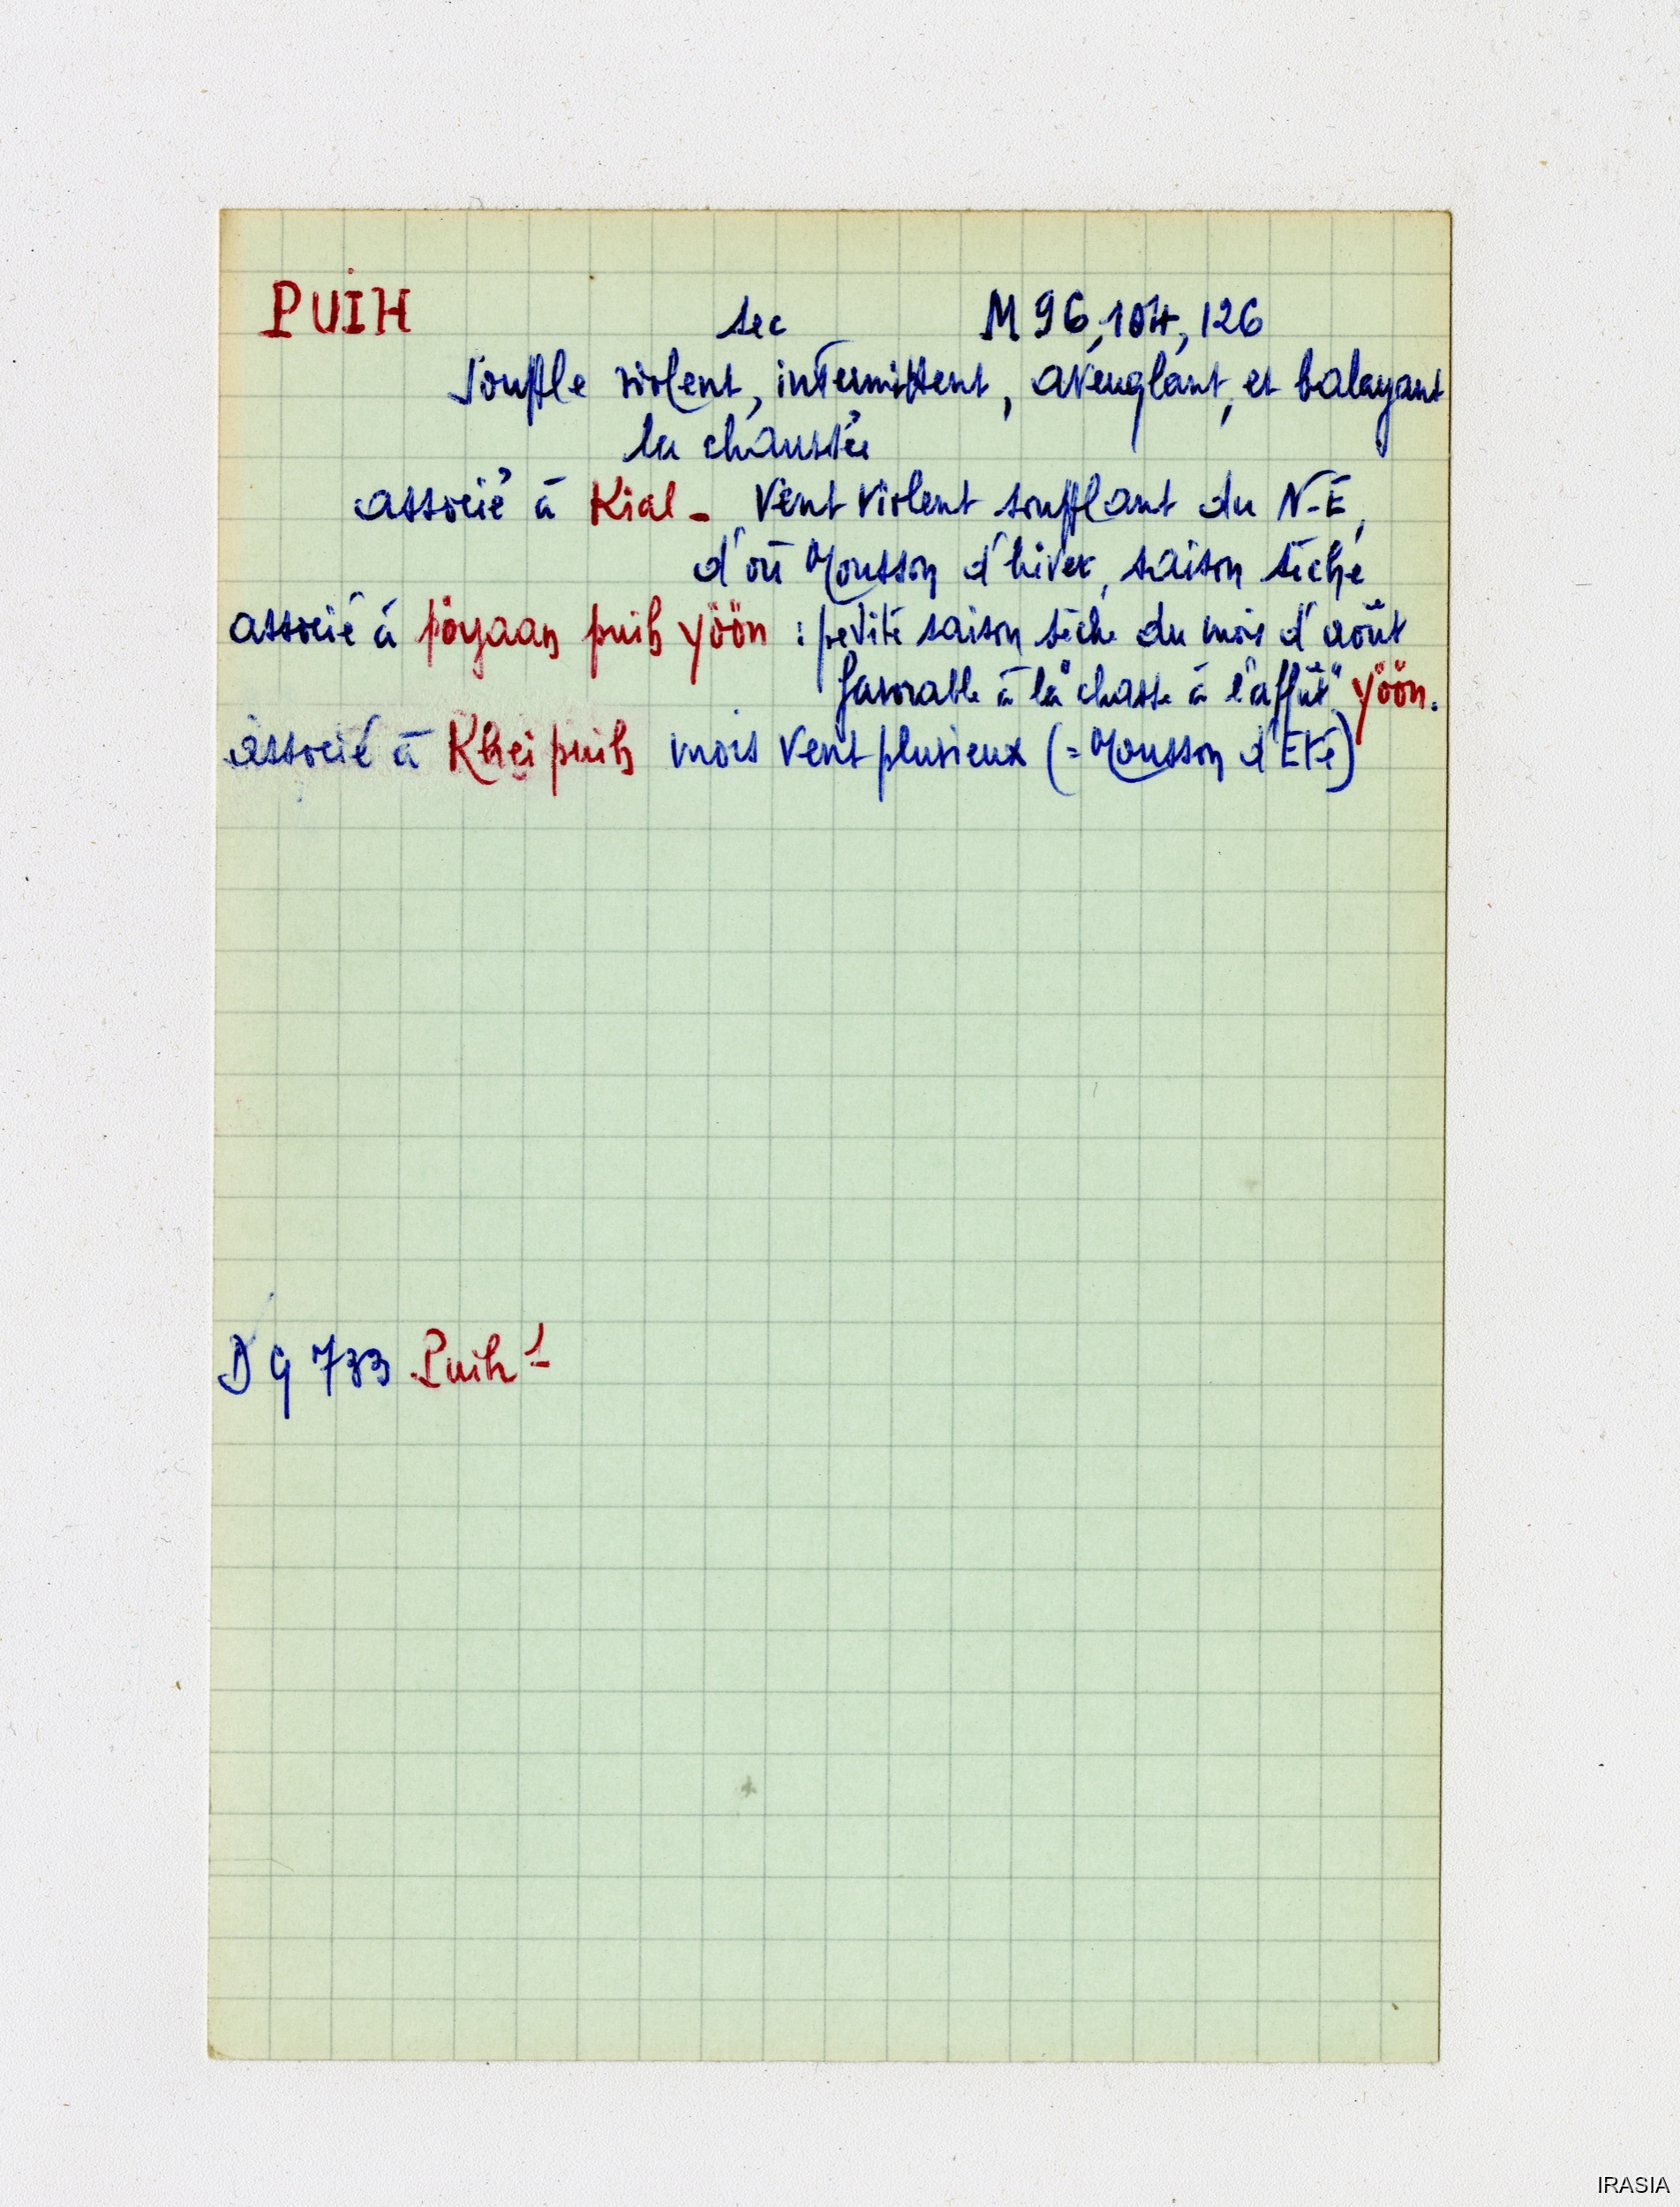 PUIH sec M 96, 104, 126
souffle violent, intermittent, aveuglant, et balayant
la chaussée
associé à Kial - Vent violent soufflant du N-E,
d'où Mousson d'hiver, saison sèche
associé à pöyaan puih yöön : petite saison sèche du mois d'août
favorable à la "chasse à l'affût" yöön.
associé à Khei puih mois Vent plusieux (= Mousson d'Eté)
DG 733 Puih 1
IRASIA